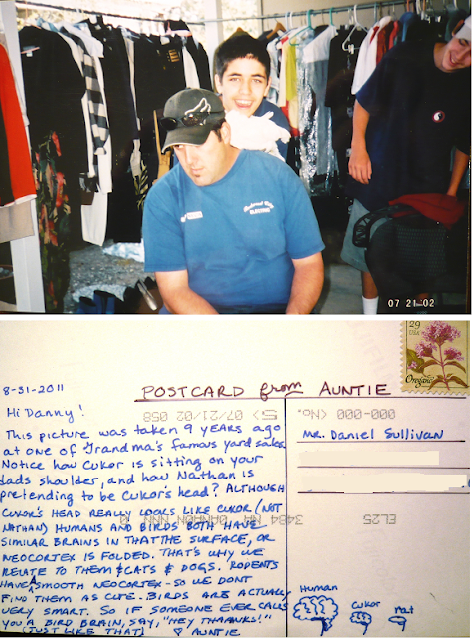 ELECTRIC
07 21 02
29
USA
Oregano
8-31-2011
POSTCARD from AUNTIE
Hi Danny!
This picture was taken 9 years ago
at one of Grandma's famous yard sales.
Notice how Cukor is sitting on your
dads shoulder, and how Nathan is
pretending to be Cukor's head? ALTHOUGH
CUKOR'S HEAD REALLY LOOKS LIKE CUKOR (NOT
NATHAN) HUMANS AND BIRDS BOTH HAVE
SIMILAR BRAINS IN THAT THE SURFACE, OR
NEOCORTEX IS FOLDED. THAT'S WHY WE
RELATE TO THEM & CATS & DOGS. RODENTS
HAVE A SMOOTH NEOCORTEX - SO WE DONT
FIND THEM AS CUTE. BIRDS ARE ACTUALLY
VERY SMART. SO IF SOMEONE EVER CALLS
YOU A BIRD BRAIN, SAY, "HEY THAANKS!"
(JUST LIKE THAT) ♡ AUNTIE
000-000 <No.
5> 07/21/02 058
Mr. Daniel Sullivan
EL25
3484
NNN
Human
Cukor
Rat